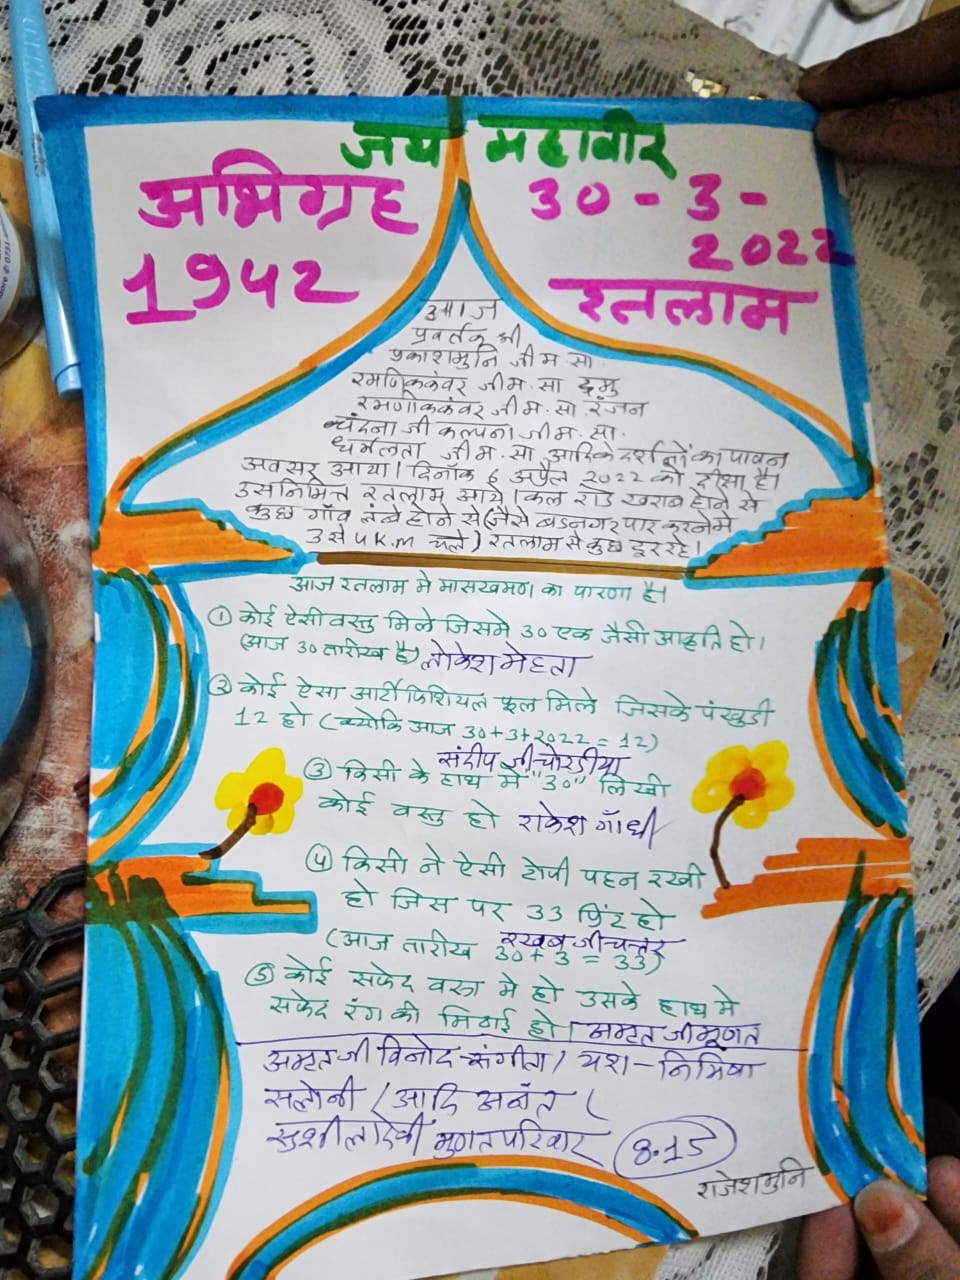 जय महावीर
अभिग्रह 30-3-
1942 2022
रतलाम
आज
प्रवर्तक श्री
प्रकाशमुनि जी म. सा.
रमणिककंवर जी म. सा
रमणीककंवर जी म. सा. रंजन
चंदना जी कल्पना जी म. सा.
धर्मलता जी म. सा. आदि के दर्शनों का पावन
अवसर आया। दिनाँक 6 अप्रैल 2022 को दीक्षा है।
उस निमित्त रतलाम आये। कल रोड खराब होने से
कुछ गाँव लंबे होने से (जैसे बडनगर पार करने में
3 से 4 K.m चले) रतलाम से कुछ दूर रहे।
आज रतलाम मे मासखमण का पारणा है।
① कोई ऐसी वस्तु मिले जिसमे 30 एक जैसी आकृति हो।
(आज 30 तारीख है) लोकेश मेहता
② कोई ऐसा आर्टीफिशियल फूल मिले जिसके पंखुडी
12 हो (क्योकि आज 30+3+2022=12)
संदीप जी चोरडीया
③ किसी के हाथ में "30" लिखी
कोई वस्तु हो राकेश गाँधी
④ किसी ने ऐसी टोपी पहन रखी
हो जिस पर 33 प्रिंट हो
(आज तारीख 30+3=33) रखब जी चत्तर
⑤ कोई सफेद वस्त्र मे हो उसके हाथ मे
सफेद रंग की मिठाई हो। अमृत जी मूणत
अमृत जी विनोद-संगीता / यश-निमिषा
सलोनी / आदि अनंत (
सुशीलादेवी मुणत परिवार 8.15
राजेशमुनि